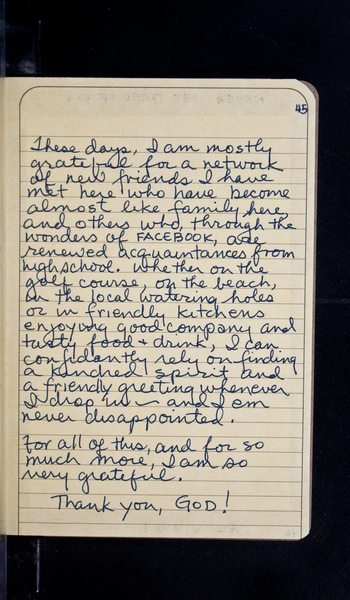 45
These days, I am mostly
grateful for a network
of new friends I have
met here who have become
almost like family here
and others who, through the
wonders of FACEBOOK, are
renewed acquaintances from
highschool. Whether on the
golf course, on the beach,
in the local watering holes
or in friendly kitchens
enjoying good company and
tasty food + drink, I can
confidantly rely on finding
a kindred spirit and
a friendly greeting whenever
I drop in ~ and I am
never disappointed.
For all of this, and for so
much more, I am so
very grateful.
Thank you, GOD!